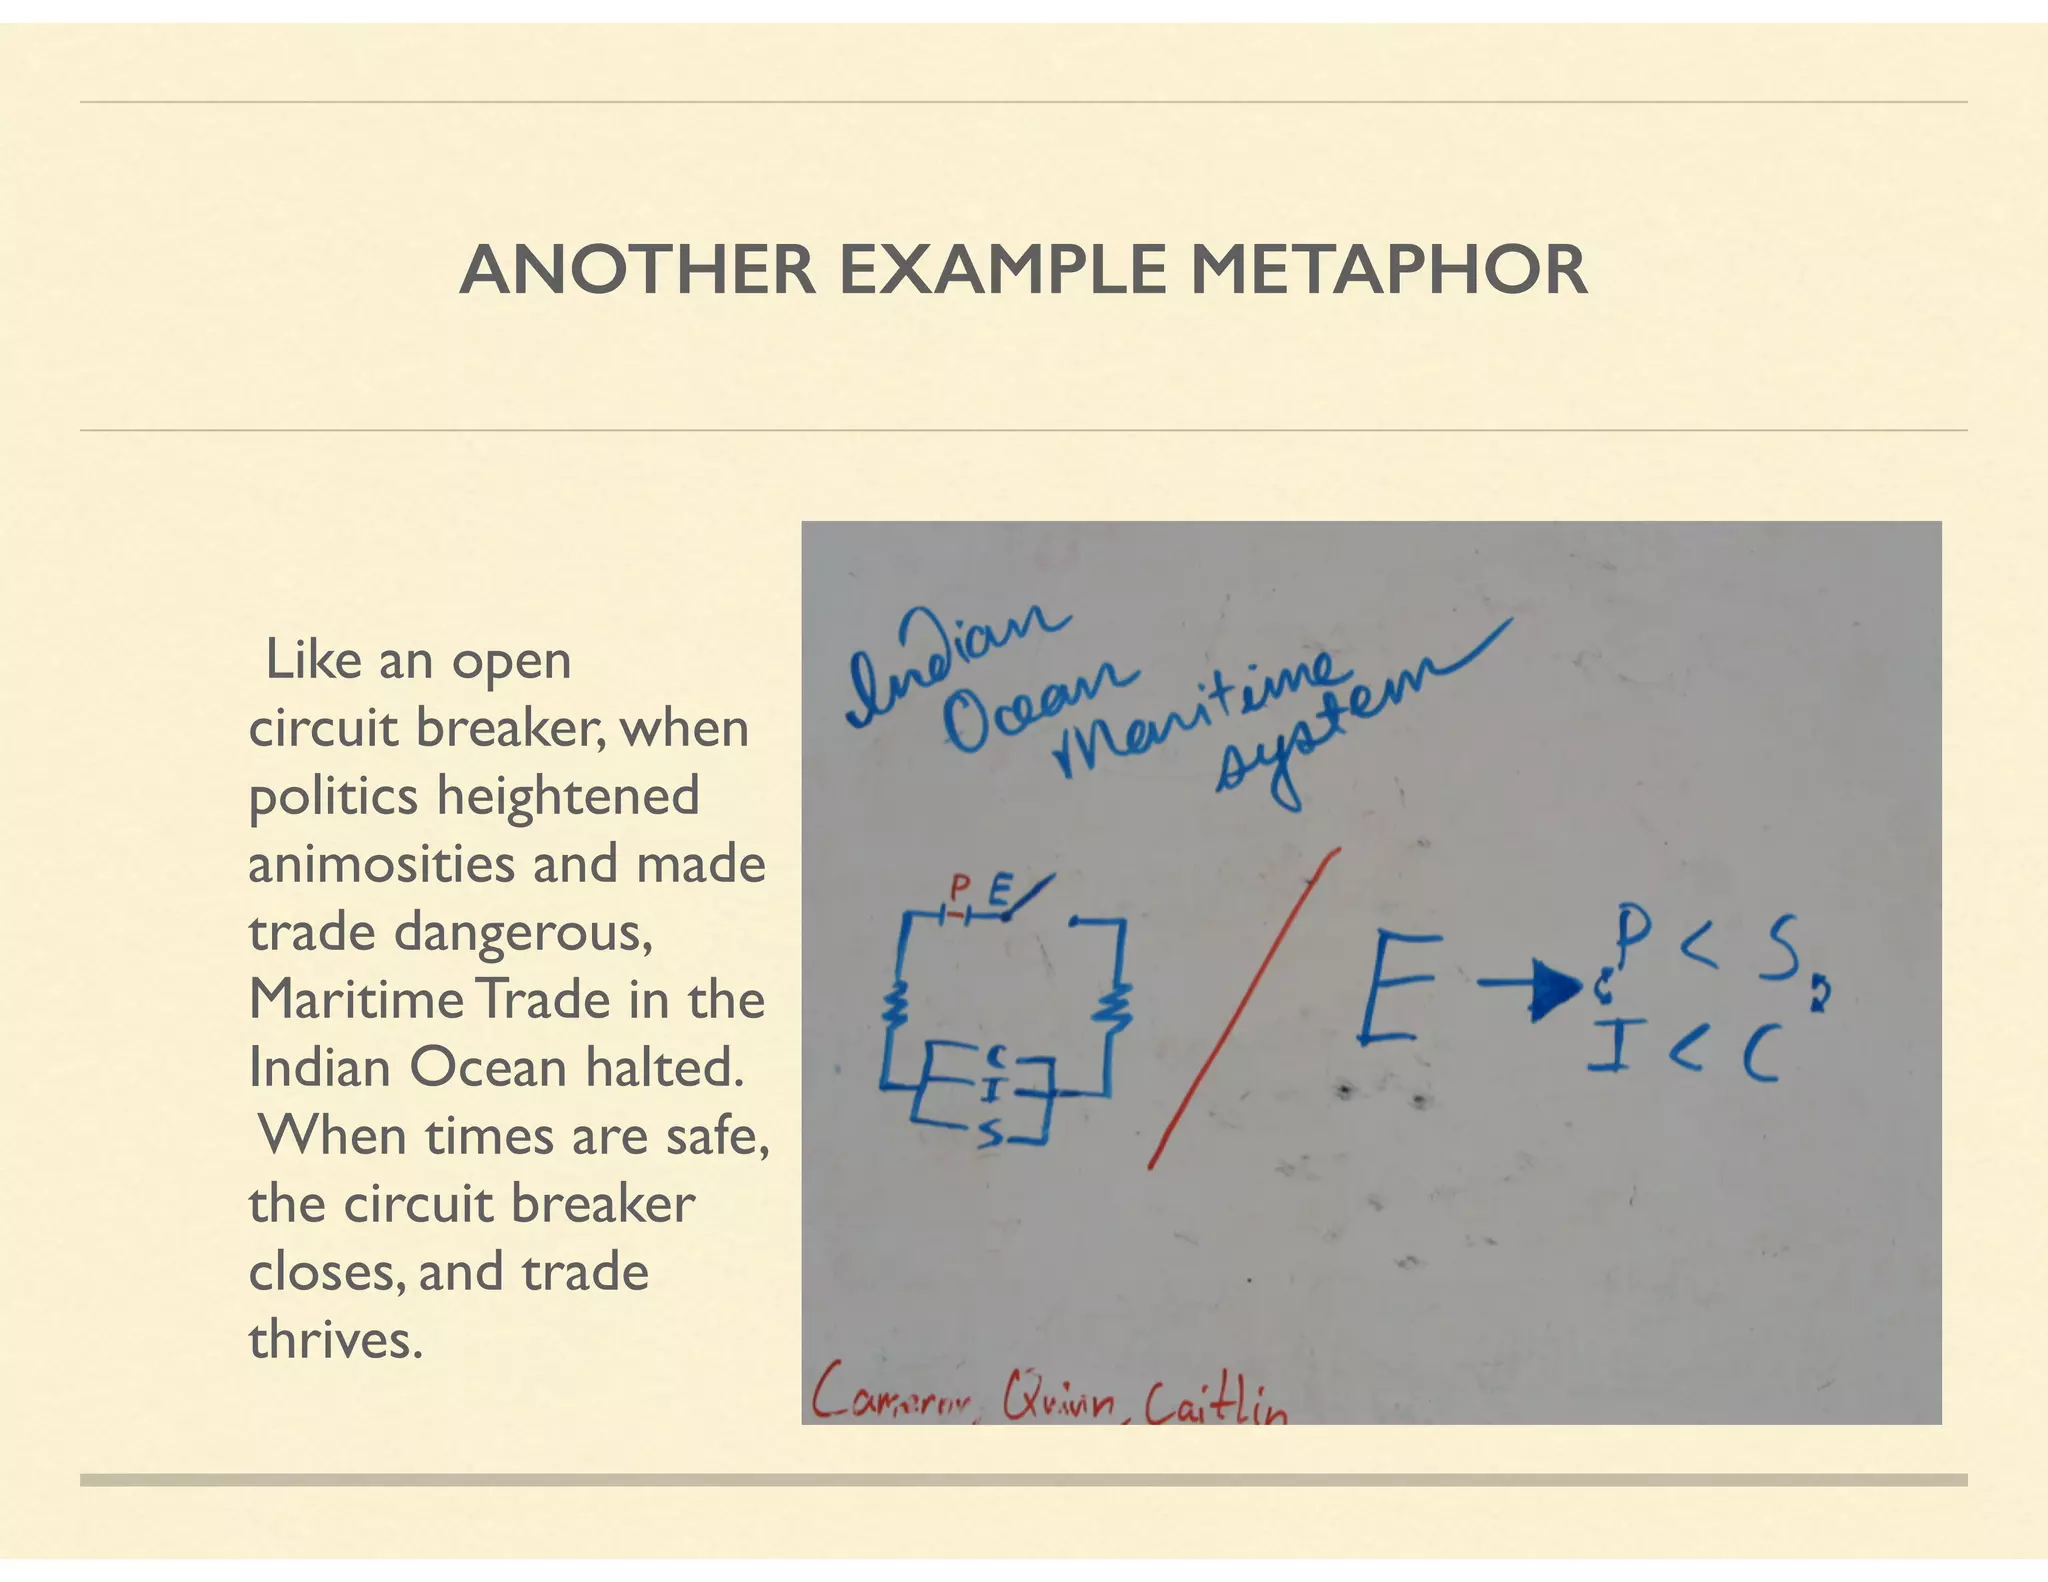 ANOTHER EXAMPLE METAPHOR
Like an open
circuit breaker, when
politics heightened
animosities and made
trade dangerous,
Maritime Trade in the
Indian Ocean halted.
When times are safe,
the circuit breaker
closes, and trade
thrives.
Indian
Ocean
Maritime
system
P E
C
I
S
E → P < S
I < C
Cameron, Quinn, Caitlin